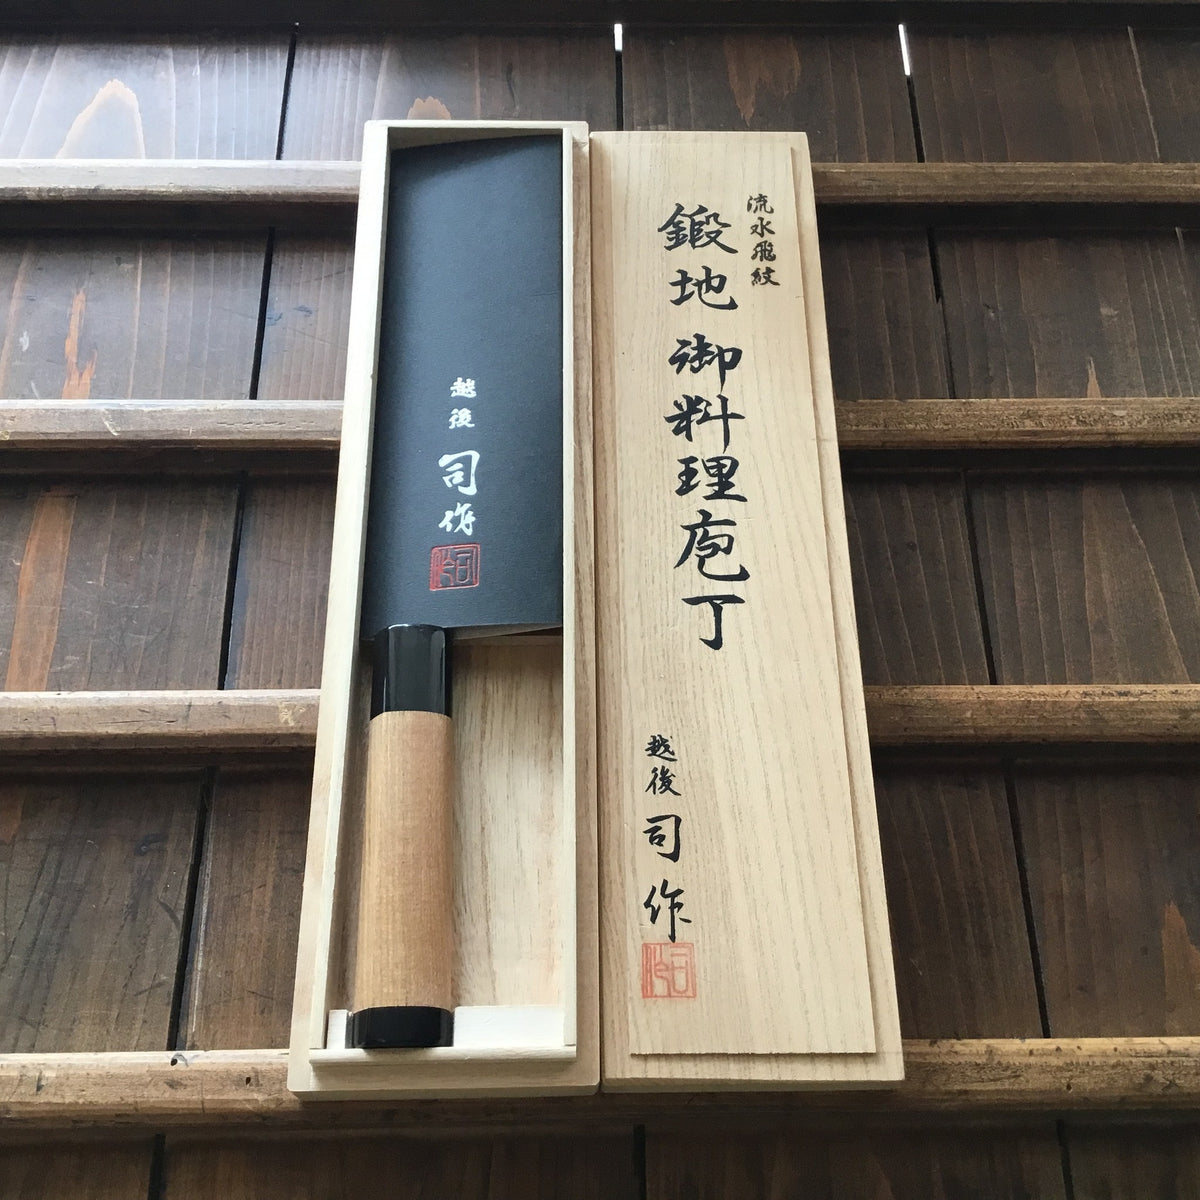 流水飛紋
鍛地 御料理庖丁
越後
司作
越後
司作